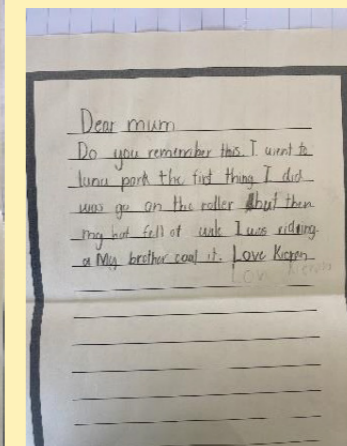 Dear mum
Do you remember this. I went to
luna park the fist thing I did
was go on the roller but then
my hat fell of I was riding
a My brother it. Love Kieran
Lov